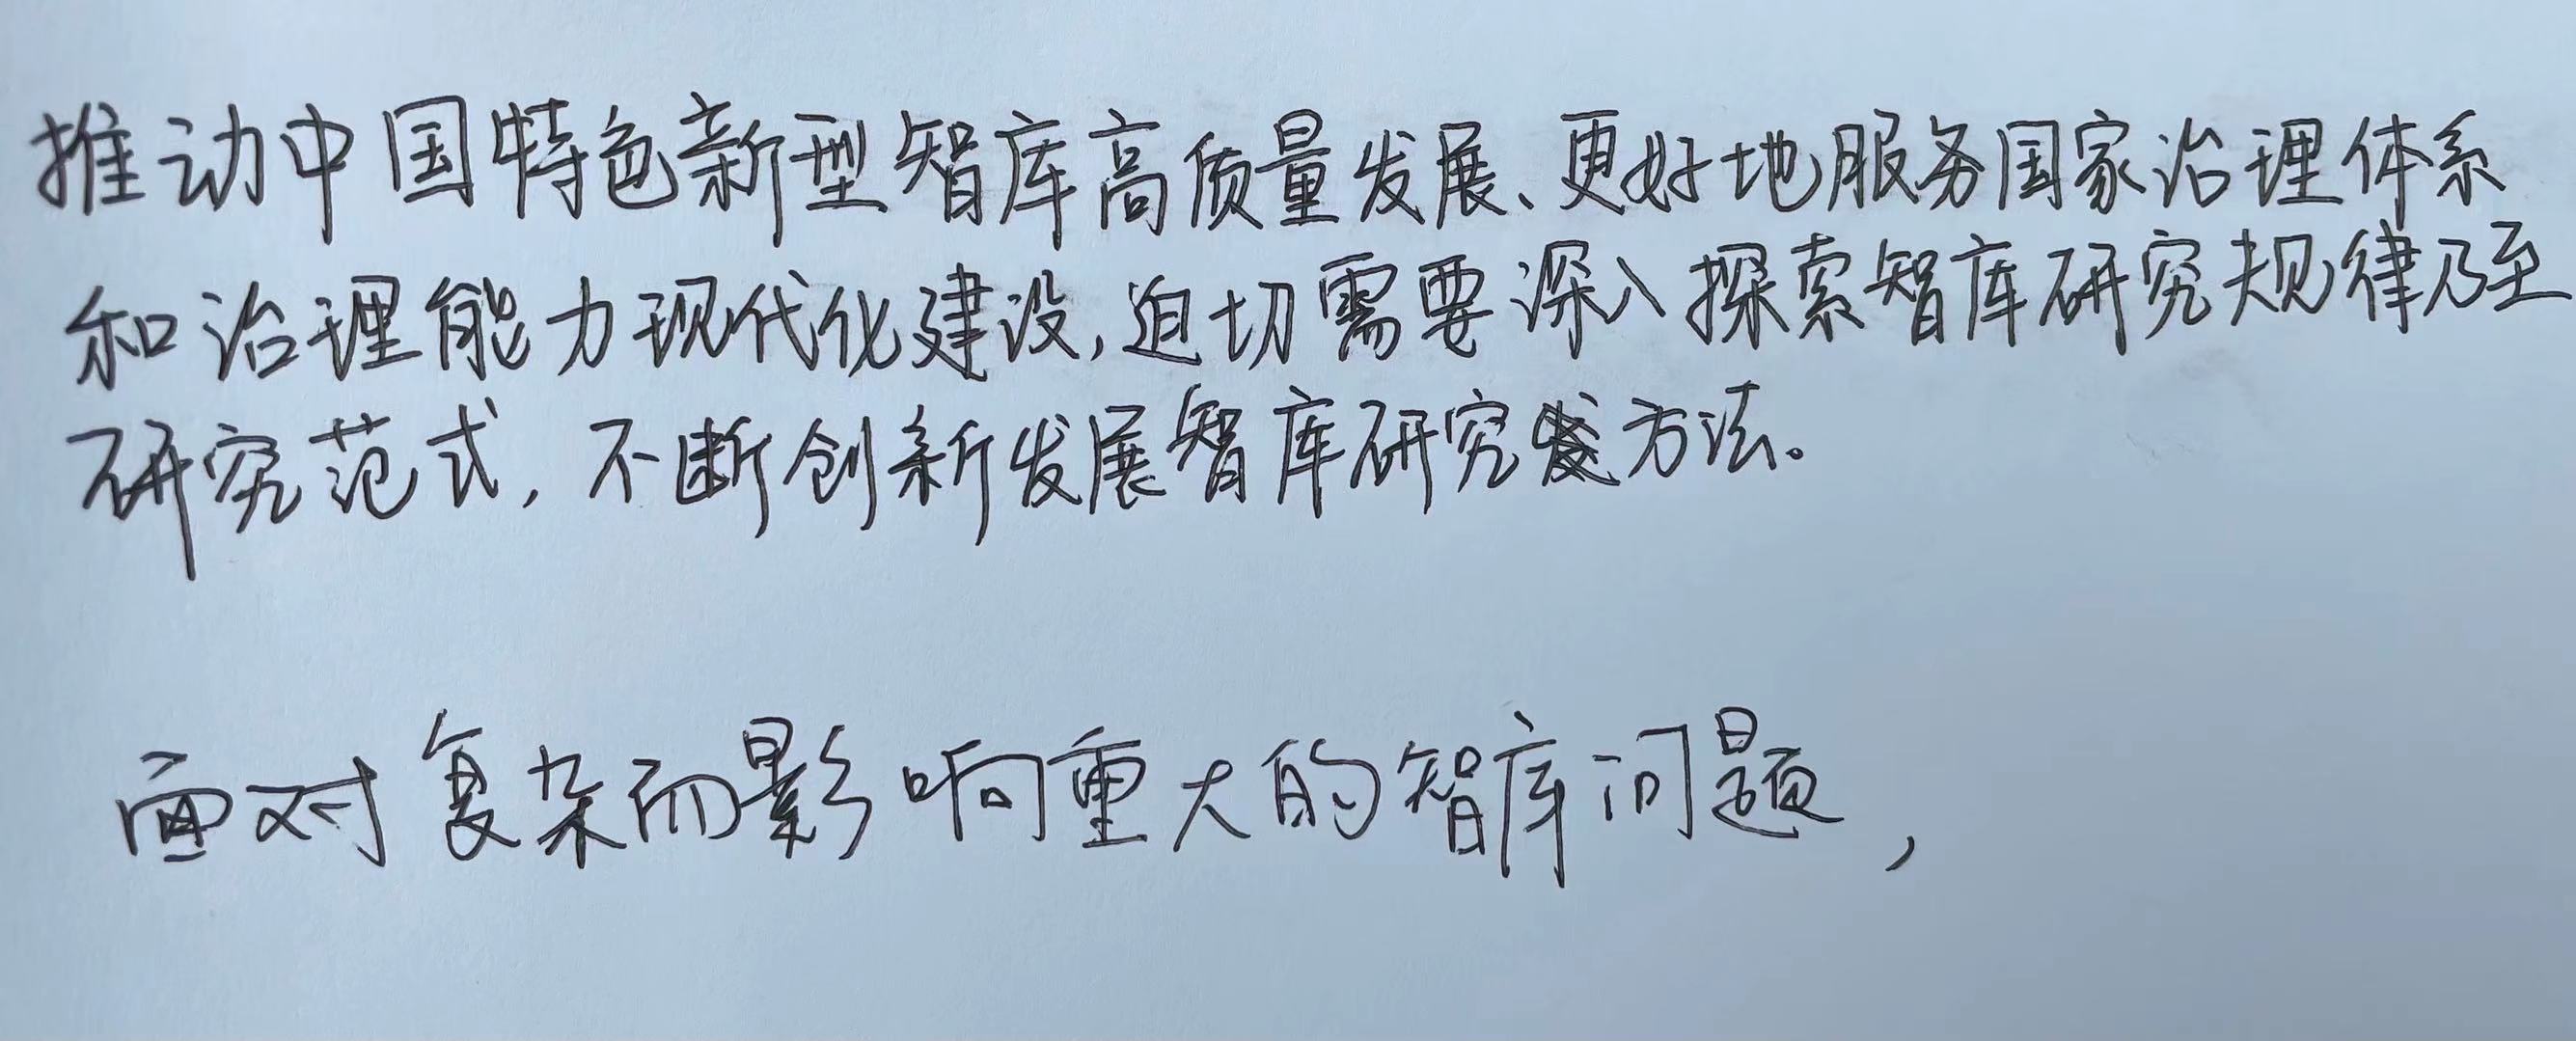 推动中国特色新型智库高质量发展、更好地服务国家治理体系
和治理能力现代化建设,迫切需要深入探索智库研究规律乃至
研究范式,不断创新发展智库研究方法。
面对复杂而影响重大的智库问题,